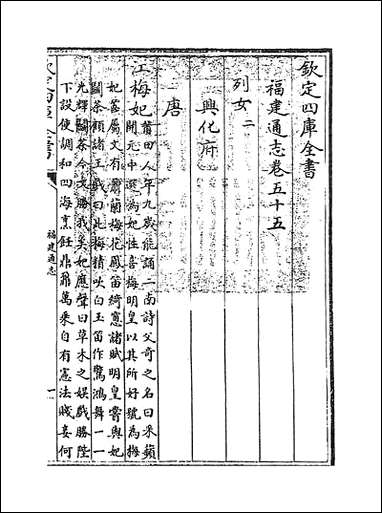 欽定四庫全書
福建通志卷五十五
列女二
興化府
唐
江梅妃莆田人年九歲能誦二南詩父奇之名曰采蘋
開元中選為妃性喜梅明皇以其所好號為梅
妃善屬文有蕭蘭梅花鳳笛綺窻諸賦明皇嘗與妃
鬬茶顧諸王戲曰此梅精吹白玉笛作驚鴻舞一一
光輝鬬茶今又勝我矣妃應聲曰草木之娱戲勝陛
下設使調和四海烹飪鼎鼐萬乘自有憲法賤妾何
福建通志
一